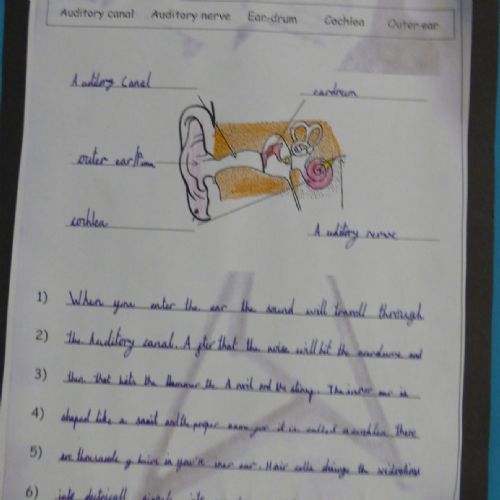 Auditory canal Auditory nerve Ear-drum Cochlea Outer ear
Auditory Canal
eardrum
outer ear/Pinna
cochlea
Auditory nerve
1) When you enter the ear the sound will travell through
2) the Auditory canal. After that the noise will hit the eardrum and
3) then that hits the Hammer the Anvil and the stirrup. The inner ear is
4) shaped like a snail and the proper name for it is called a cochlea. There
5) are thousands of hairs in you're inner ear. Hair cells change the vibrations
6) into electricall signals